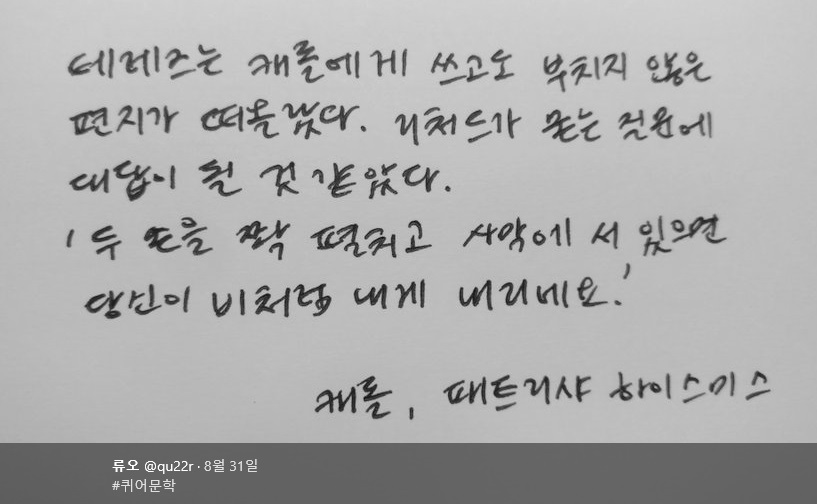 테레즈는 캐롤에게 쓰고도 부치지 않은
편지가 떠올랐다. 리처드가 묻는 질문에
대답이 될 것 같았다.
'두 손을 짝 펼치고 사막에 서 있으면
당신이 비처럼 내게 내리네요.'
캐롤, 패트리샤 하이스미스
류오 @qu22r · 8월 31일
#퀴어문학